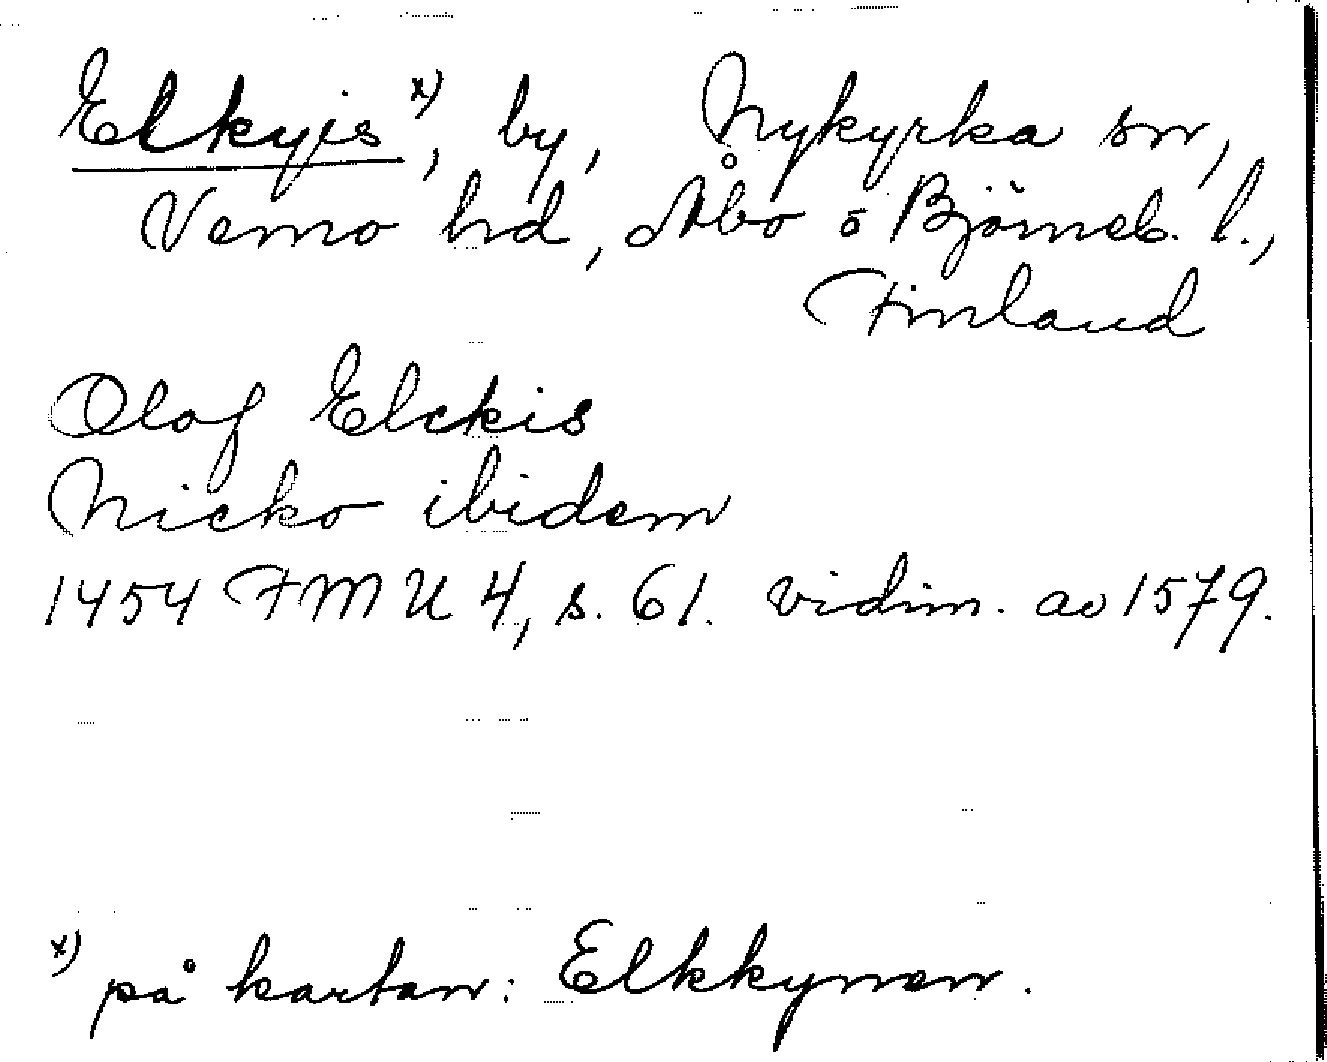 Elkyis x), by, Nykyrka sn,
Vemo hd, Åbo o Björneb. l.,
Finland
Olof Elckis
Nicko ibidem
1454 FMU 4, s. 61. vidim. av 1579.
x) på kartan: Elkkynen.